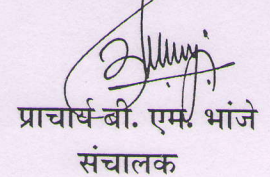 प्राचार्य बी. एम. भांजे
संचालक